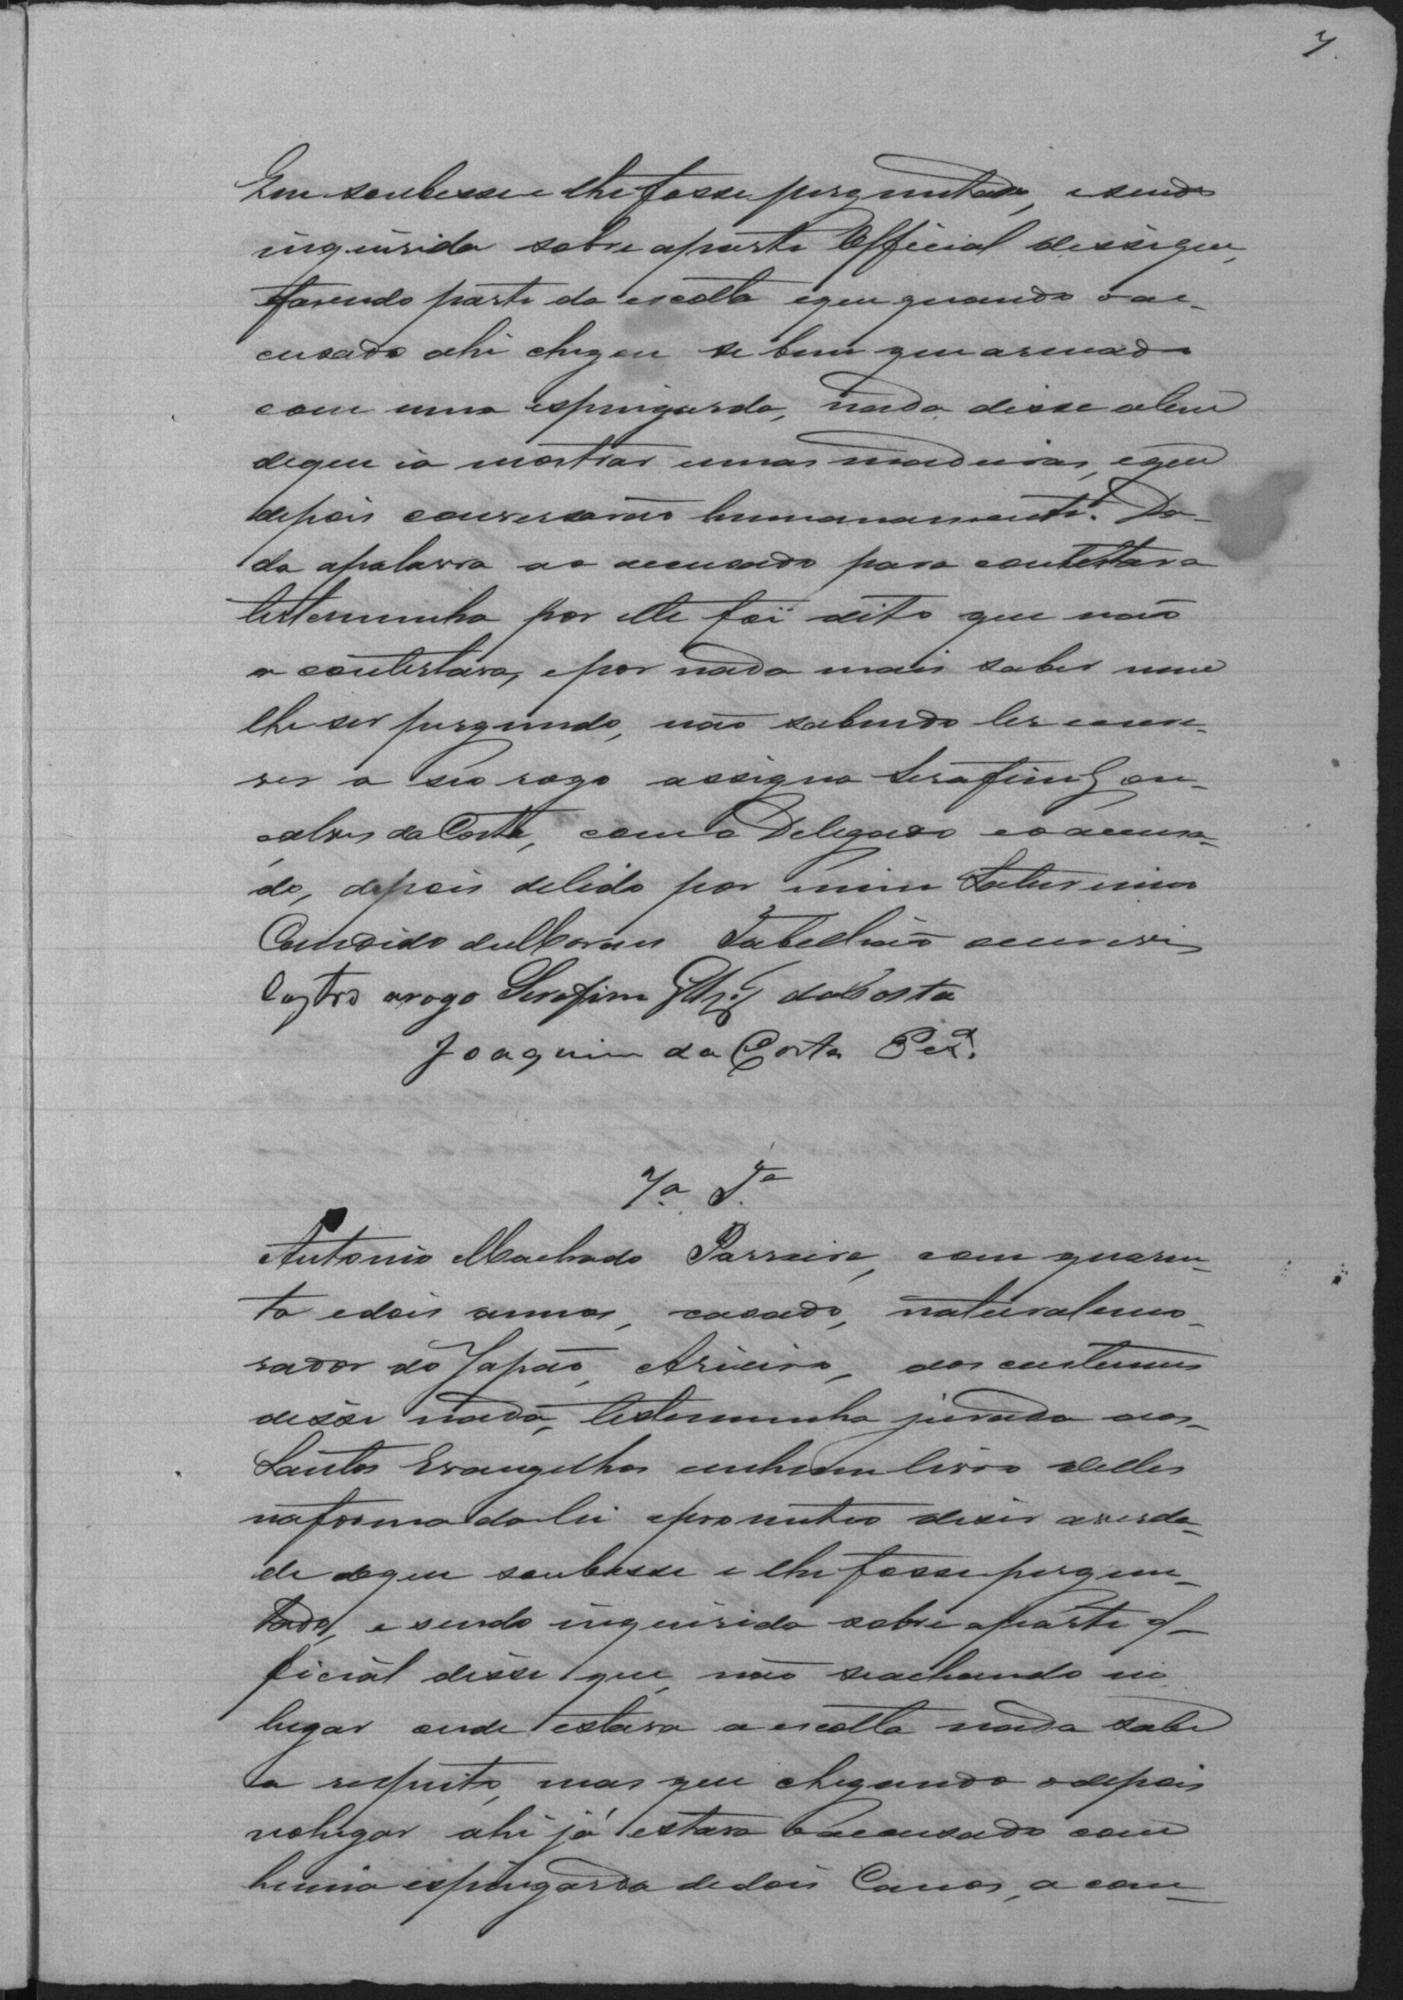 7.
que soubesse e lhe fosse perguntado, e sendo
inquirida sobre aparte Official disse que,
fasendo parte da escolta e que quando o ac-
cusado ahi chegou se bem que armado
com uma espingarda, nada disse alem
deque ia mostrar umas madeiras, eque
depois conversarão humanamente. Da-
da apalavra ao accusado para contestar a
testemunha por elle foi dito que não
a contestava, epor nada mais saber nem
lhe ser pergundo, não sabendo ler e escre-
ver a seo rogo assigna Serafim Gon-
çalves da Costa, com o Delegado e o accusa-
do, depois delido por mim Saturnino
Candido de Moraes Tabellião escrevi
Castro arogo Serafim Glz da Costa
Joaquim da Costa
7ª Tª
Antonio Machado Parreira, com quaren-
ta e dois annos, casado, natural e mo-
rador do Japão, Arieiro, dos custumes
disse nada, testemunha jurada aos
Santos Evangelhos em hum livro delles
na forma da lei e prometteo diser averda-
de do que soubesse e lhe fosse pergun-
tado, e sendo inquirida sobre aparte of-
ficial disse que, não se achando no
lugar onde estava a escolta nada sabe
a respeito, mas que chegando odepois
nolugar ahi já estava o accusado com
huma espingarda de dois Canos, a com-